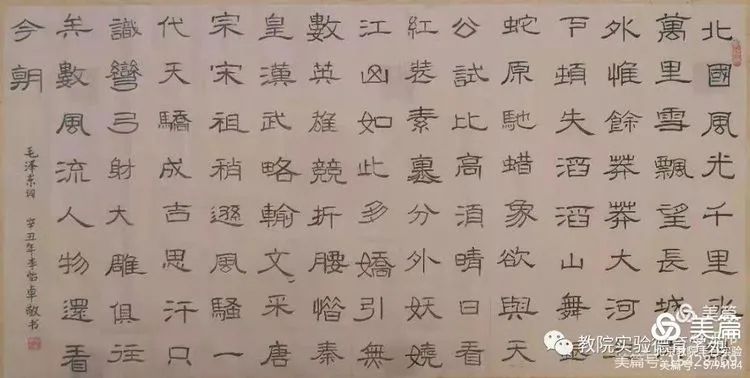 北國風光千里氷
萬里雪飄望長城
外惟餘莽莽大河
下頓失滔滔山舞
蛇原馳蜡象欲與天
公試比高湏晴日看
紅裝素裹分外妖嬈
江山如此多嬌引無
數英雄競折腰惜秦
皇漢武略輸文采唐
宗宋祖稍遜風騷一
代天驕成吉思汗只
識彎弓射大雕俱往
矣數風流人物還看
今朝
毛泽东词 辛丑年李怡卓敬书
美篇
美篇
教院实验德育学苑
美篇号